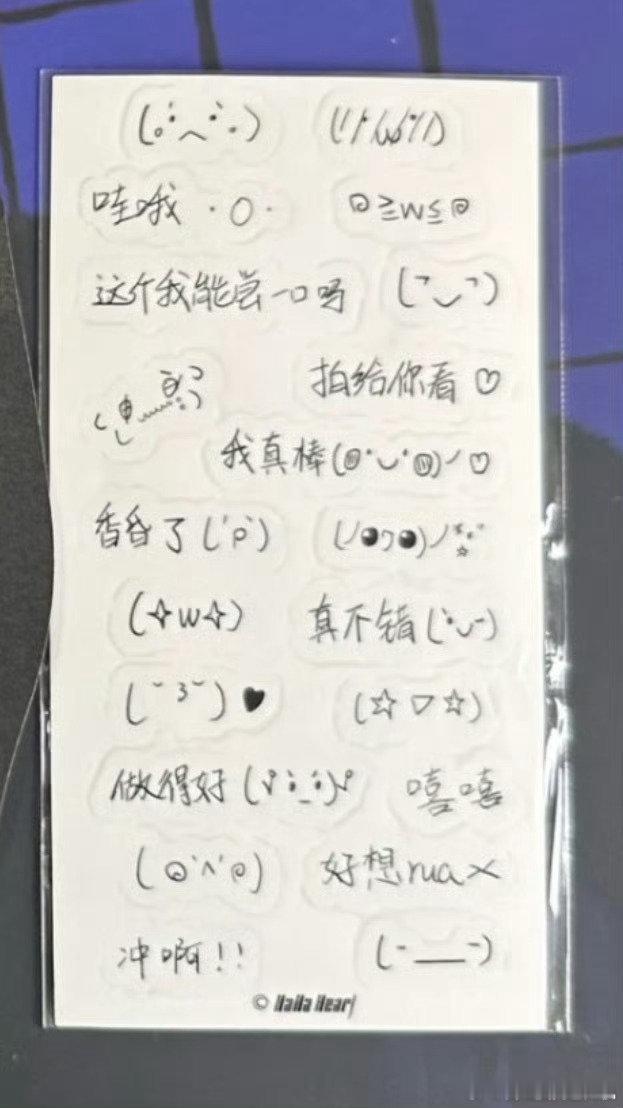 (。•́︿•̀。) (//ω//)
哇哦 ·O·
꩜≧w≦꩜
这个我能尝一口吗 (˘‿˘)
拍给你看♡
我真棒(⊙˙◡˙⊙)ノ♡
香昏了('ρ') (ノ◕ヮ◕)ノ*:･ﾟ☆
(✧w✧) 真不错(•̀ᴗ-)
(˘³˘)♥ (☆▽☆)
做得好 嘻嘻
(๑˙^˙๑) 好想rua×
冲啊!! (-__-)
© HaHa Heart